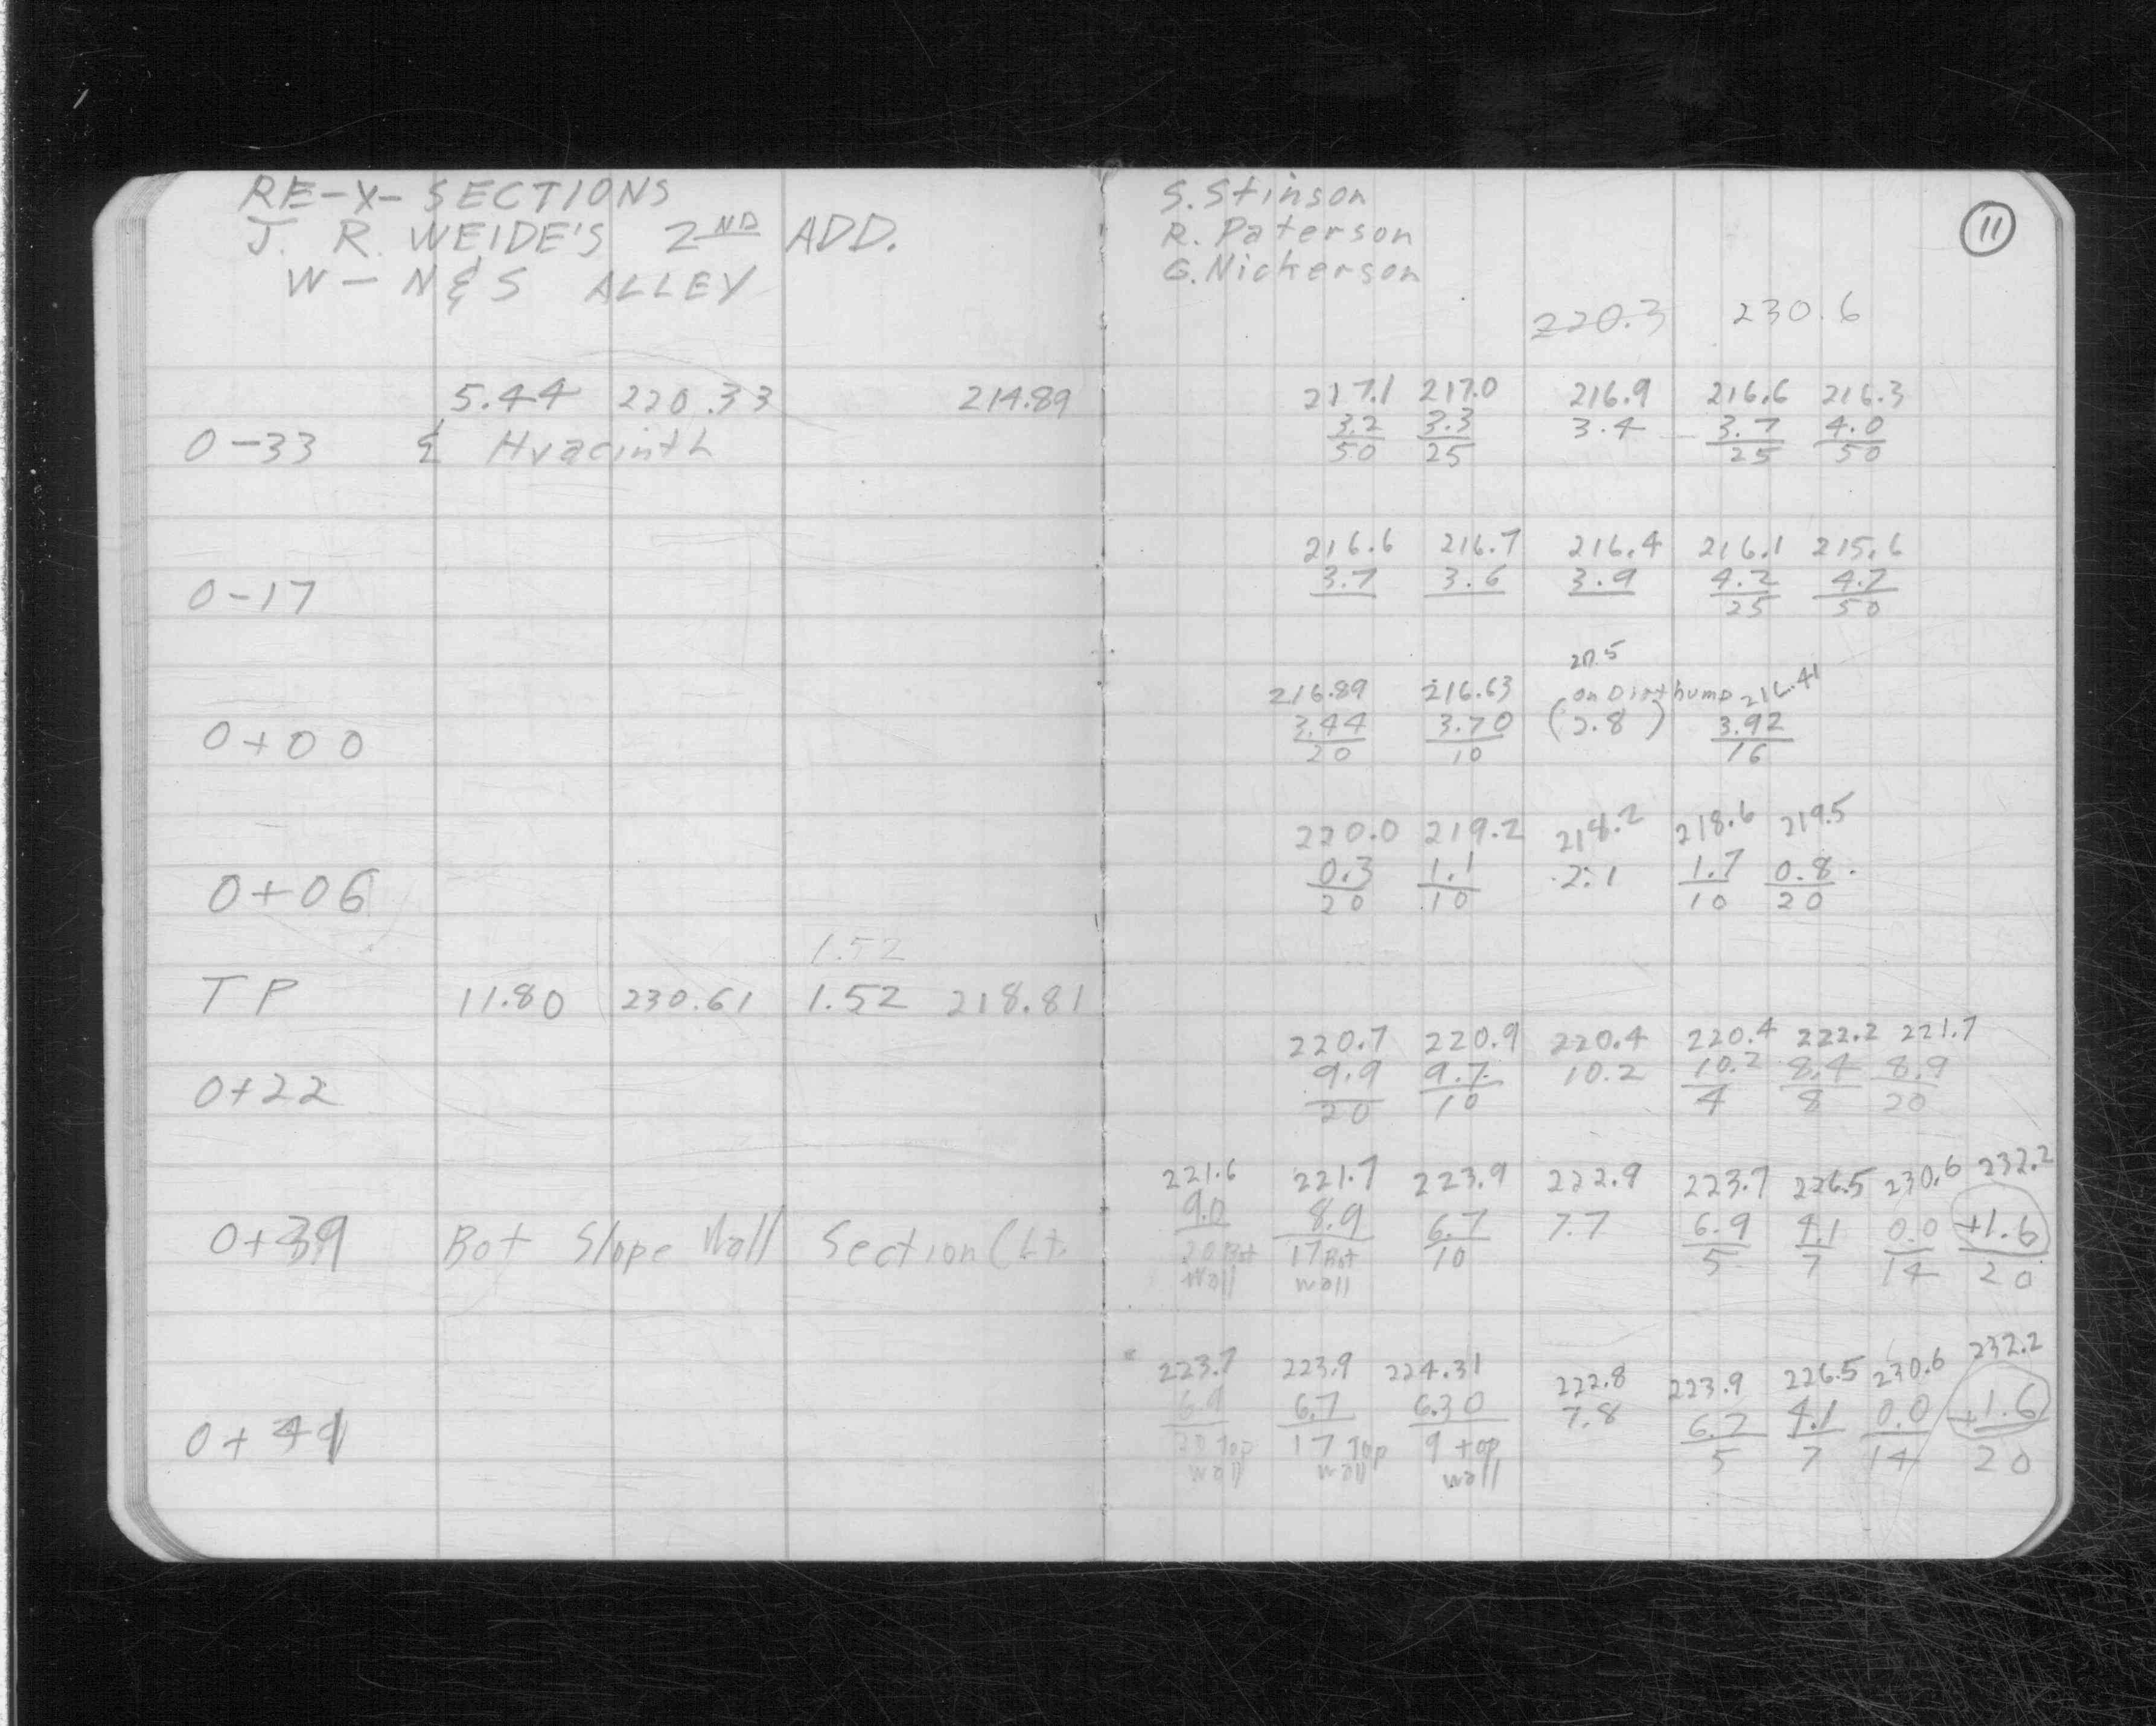 RE-X-SECTIONS
J. R. WEIDE'S 2ND ADD.
W - N & S ALLEY
5.44 220.33 214.89
0-33 ℄ Hyacinth
0-17
0+00
0+06
1.52
TP 11.80 230.61 1.52 218.81
0+22
0+39 Bot Slope Wall Section (Lt.
0+41
S. Stinson
R. Paterson
G. Nickerson
11
220.3 230.6
217.1 217.0 216.9 216.6 216.3
3.2 3.3 3.4 3.7 4.0
50 25 25 50
216.6 216.7 216.4 216.1 215.6
3.7 3.6 3.9 4.2 4.7
25 50
217.5
216.89 216.63 on Dirt hump 216.41
3.44 3.70 (2.8) 3.92
20 10 16
220.0 219.2 218.2 218.6 219.5
0.3 1.1 2.1 1.7 0.8
20 10 10 20
220.7 220.9 220.4 220.4 222.2 221.7
9.9 9.7 10.2 10.2 8.4 8.9
20 10 4 8 20
221.6 221.7 223.9 222.9 223.7 226.5 230.6 232.2
9.0 8.9 6.7 7.7 6.9 4.1 0.0 +1.6
20 Bot 17 Bot 10 5 7 14 20
wall wall
223.7 223.9 224.31 222.8 223.9 226.5 230.6 232.2
6.9 6.7 6.30 7.8 6.7 4.1 0.0 +1.6
20 Top 17 Top 9 top 5 7 14 20
wall wall wall